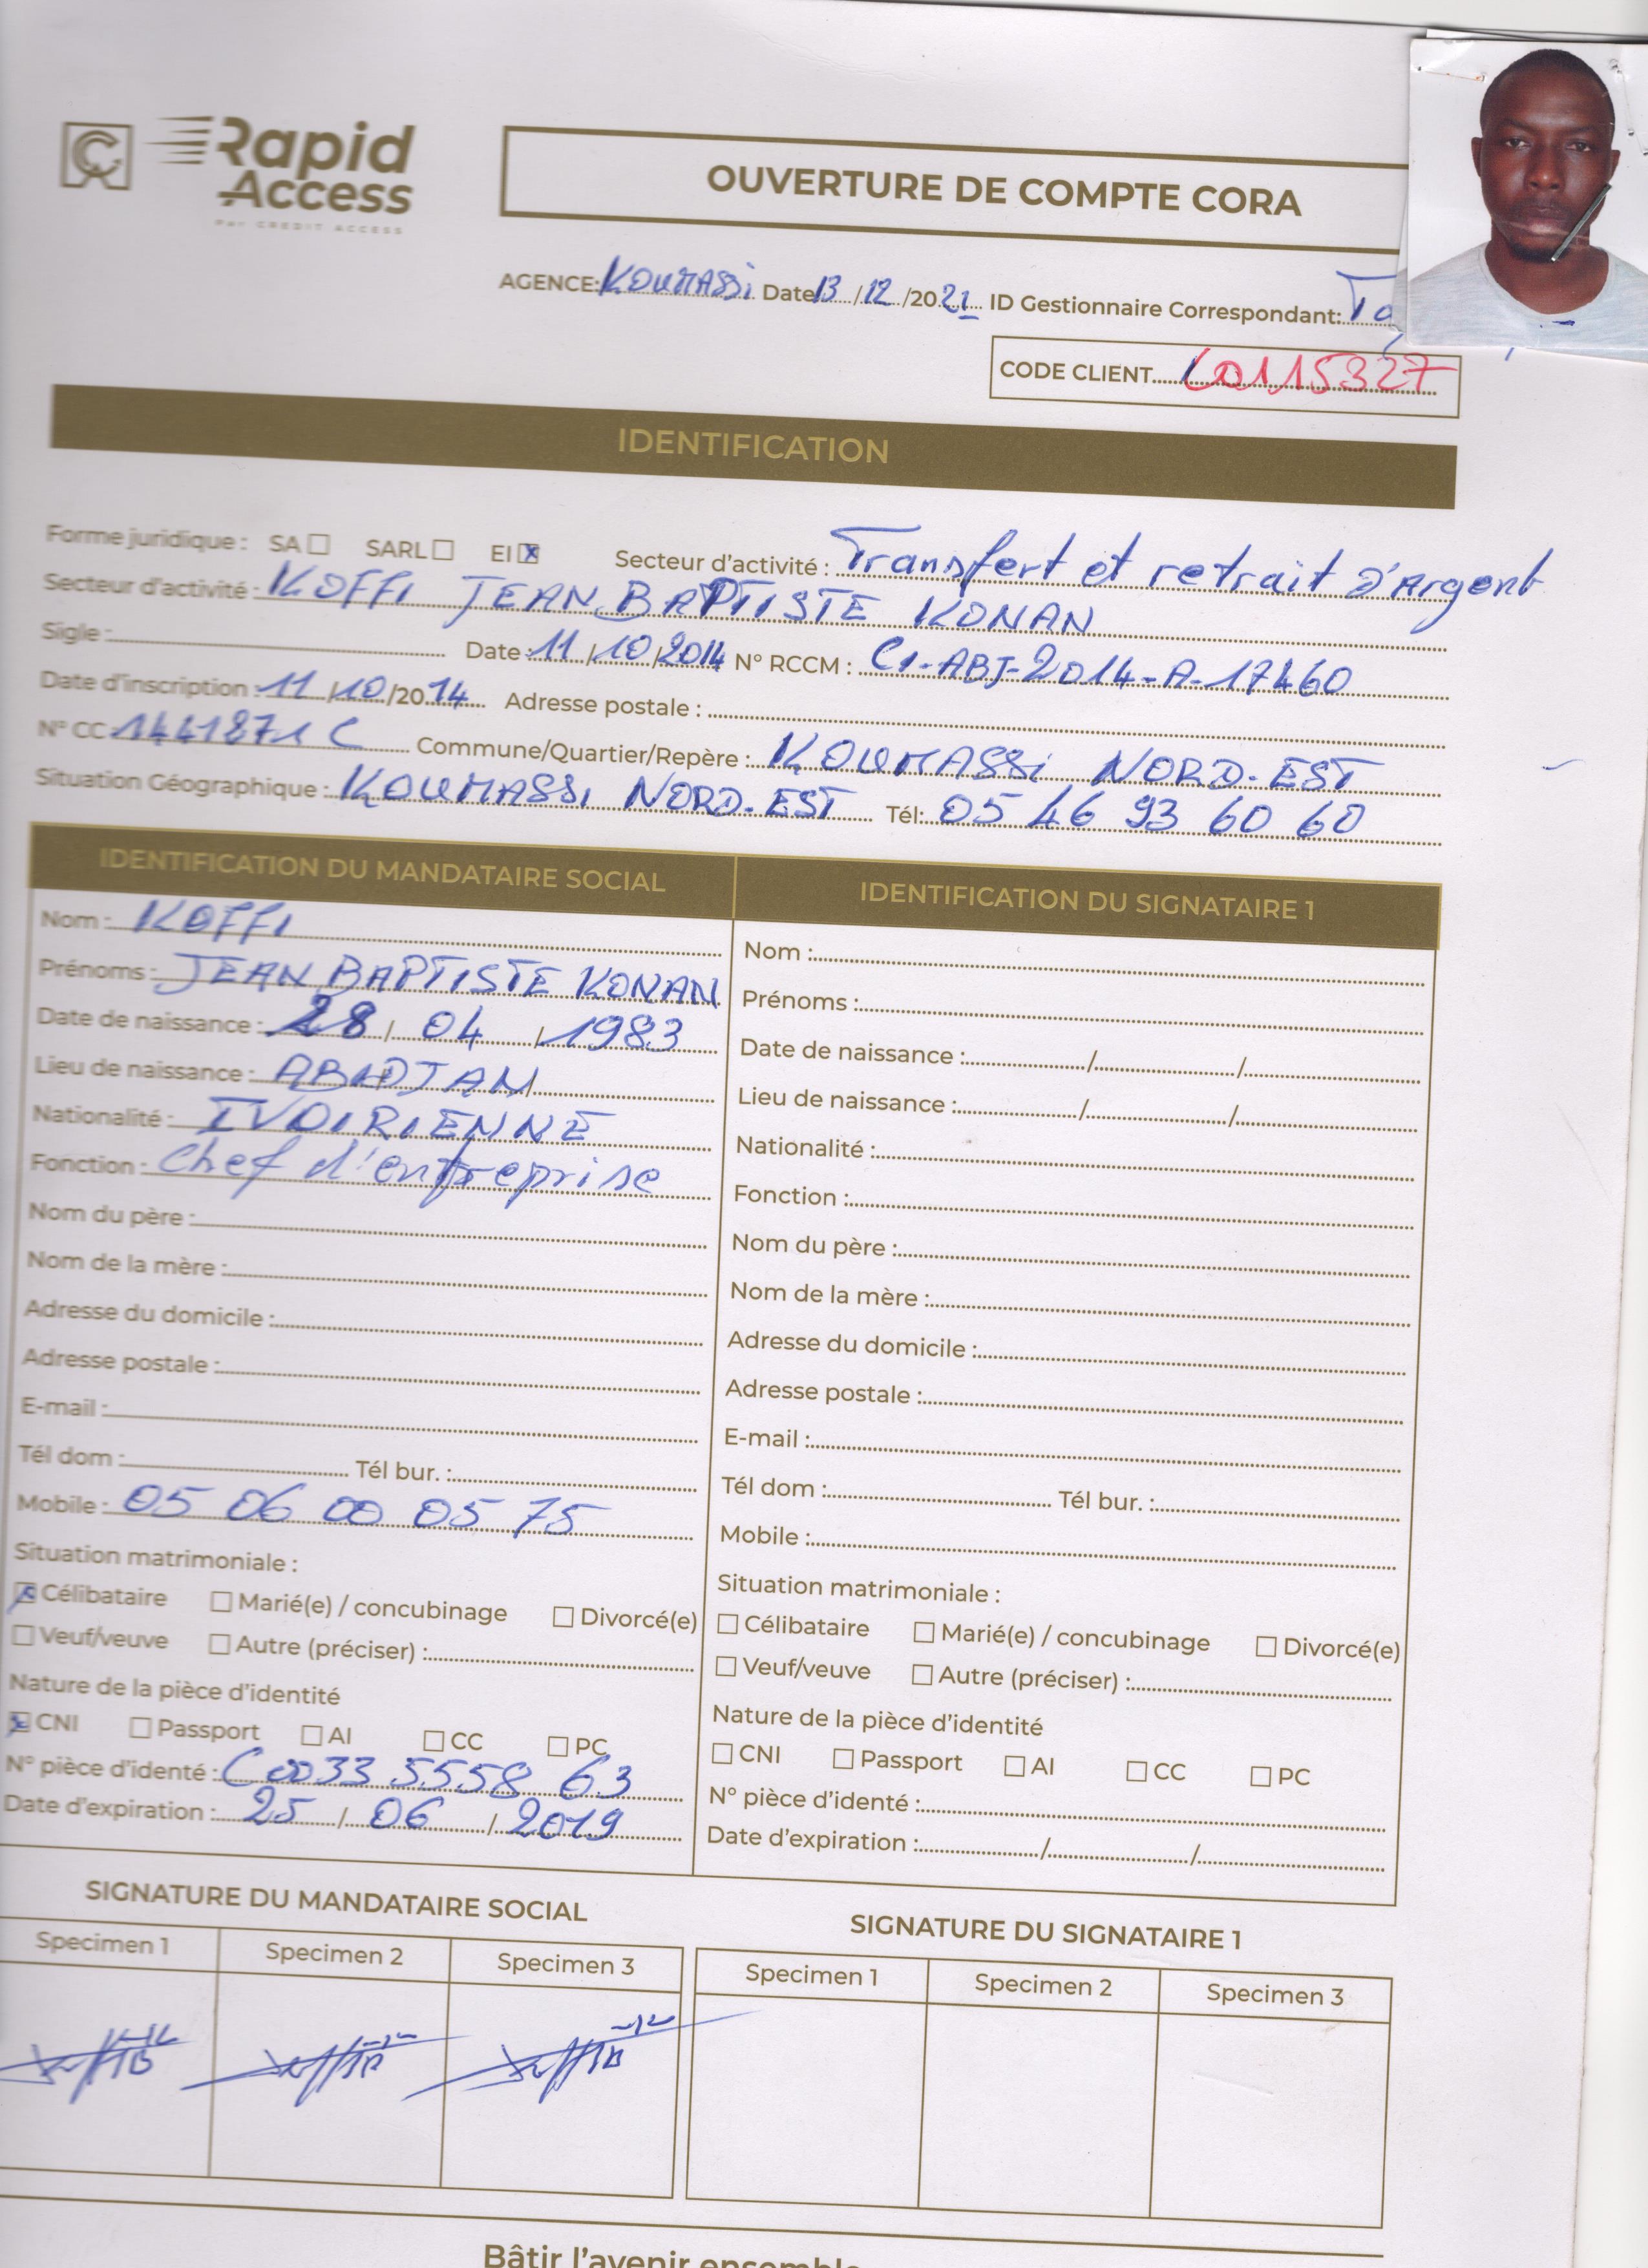 Rapid
Access
PAR CREDIT ACCESS
OUVERTURE DE COMPTE CORA
AGENCE: KOUMASSI Date 13 / 12 /2021 ID Gestionnaire Correspondant:
CODE CLIENT C0115327
IDENTIFICATION
Forme juridique : SA ☐ SARL ☐ EI ☒ Secteur d'activité : Transfert et retrait d'Argent
Secteur d'activité : KOFFI JEAN BAPTISTE KONAN
Sigle : Date : 11 / 10 / 2014 N° RCCM : CI-ABJ-2014-A-17460
Date d'inscription : 11 / 10 /2014 Adresse postale :
N° CC 1441871 C Commune/Quartier/Repère : KOUMASSI NORD-EST
Situation Géographique : KOUMASSI NORD-EST Tél: 05 46 93 60 60
IDENTIFICATION DU MANDATAIRE SOCIAL
Nom : KOFFI
Prénoms : JEAN BAPTISTE KONAN
Date de naissance : 28 / 04 / 1983
Lieu de naissance : ABIDJAN
Nationalité : IVOIRIENNE
Fonction : Chef d'entreprise
Nom du père :
Nom de la mère :
Adresse du domicile :
Adresse postale :
E-mail :
Tél dom : Tél bur. :
Mobile : 05 06 00 05 75
Situation matrimoniale :
☒ Célibataire ☐ Marié(e) / concubinage ☐ Divorcé(e)
☐ Veuf/veuve ☐ Autre (préciser) :
Nature de la pièce d'identité
☒ CNI ☐ Passport ☐ AI ☐ CC ☐ PC
N° pièce d'identé : C 0033 5558 63
Date d'expiration : 25 / 06 / 2019
IDENTIFICATION DU SIGNATAIRE 1
Nom :
Prénoms :
Date de naissance : / /
Lieu de naissance : / /
Nationalité :
Fonction :
Nom du père :
Nom de la mère :
Adresse du domicile :
Adresse postale :
E-mail :
Tél dom : Tél bur. :
Mobile :
Situation matrimoniale :
☐ Célibataire ☐ Marié(e) / concubinage ☐ Divorcé(e)
☐ Veuf/veuve ☐ Autre (préciser) :
Nature de la pièce d'identité
☐ CNI ☐ Passport ☐ AI ☐ CC ☐ PC
N° pièce d'identé :
Date d'expiration : / /
SIGNATURE DU MANDATAIRE SOCIAL
Specimen 1 Specimen 2 Specimen 3
SIGNATURE DU SIGNATAIRE 1
Specimen 1 Specimen 2 Specimen 3
Bâtir l'avenir ensemble